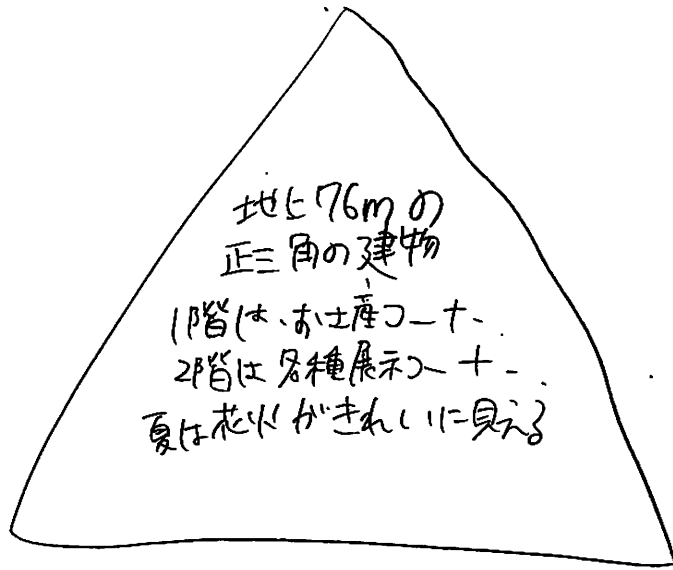 地上76mの
正三角の建物
1階は、お土産コーナー
2階は各種展示コーナー
夏は花火がきれいに見える